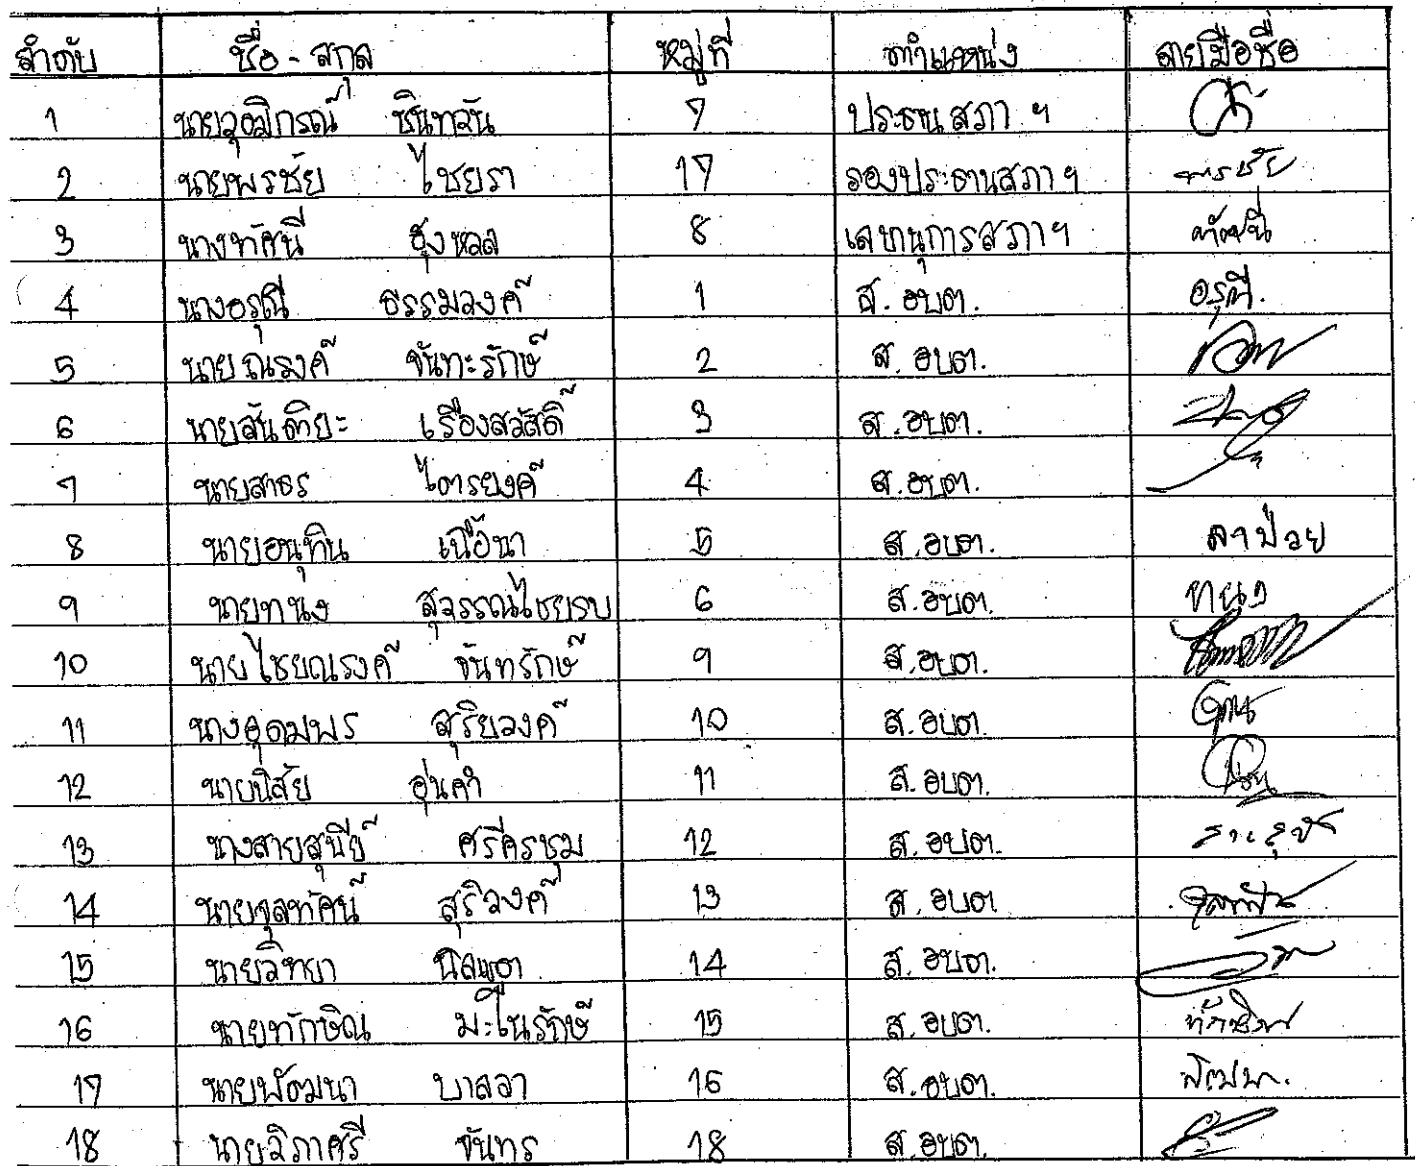 ลำดับ ชื่อ - สกุล หมู่ที่ ตำแหน่ง ลายมือชื่อ
1 นายวุฒิกรณ์ ชินทวัน 7 ประธานสภา ฯ
2 นายพรชัย ไชยรา 17 รองประธานสภาฯ พรชัย
3 นางทัศนี สุงหลล 8 เลขานุการสภาฯ ทัศนี
4 นางอรุณี ธรรมวงค์ 1 ส.อบต. อรุณี.
5 นายณรงค์ จันทะรักษ์ 2 ส.อบต.
6 นายสันติยะ เรืองสวัสดิ์ 3 ส.อบต.
7 นายสาธร ไตรยงค์ 4 ส.อบต.
8 นายอนุทิน เนื้อนา 5 ส.อบต. ลาป่วย
9 นายทนง สุวรรณไชยรบ 6 ส.อบต. ทนง
10 นายไชยณรงค์ จันทรักษ์ 9 ส.อบต.
11 นางอุดมพร สุริยวงค์ 10 ส.อบต.
12 นายนิสัย อุ่นคำ 11 ส.อบต.
13 นางสายสุนีย์ ศรีครชุม 12 ส.อบต.
14 นายจุลทัศน์ สุริวงค์ 13 ส.อบต.
15 นายวิทยา นิลเขต 14 ส.อบต.
16 นายทักษิณ มะโนรักษ์ 15 ส.อบต. ทักษิณ
17 นายพัฒนา บาลจา 16 ส.อบต. พัฒนา.
18 นายวิภาศรี จันทร 18 ส.อบต.